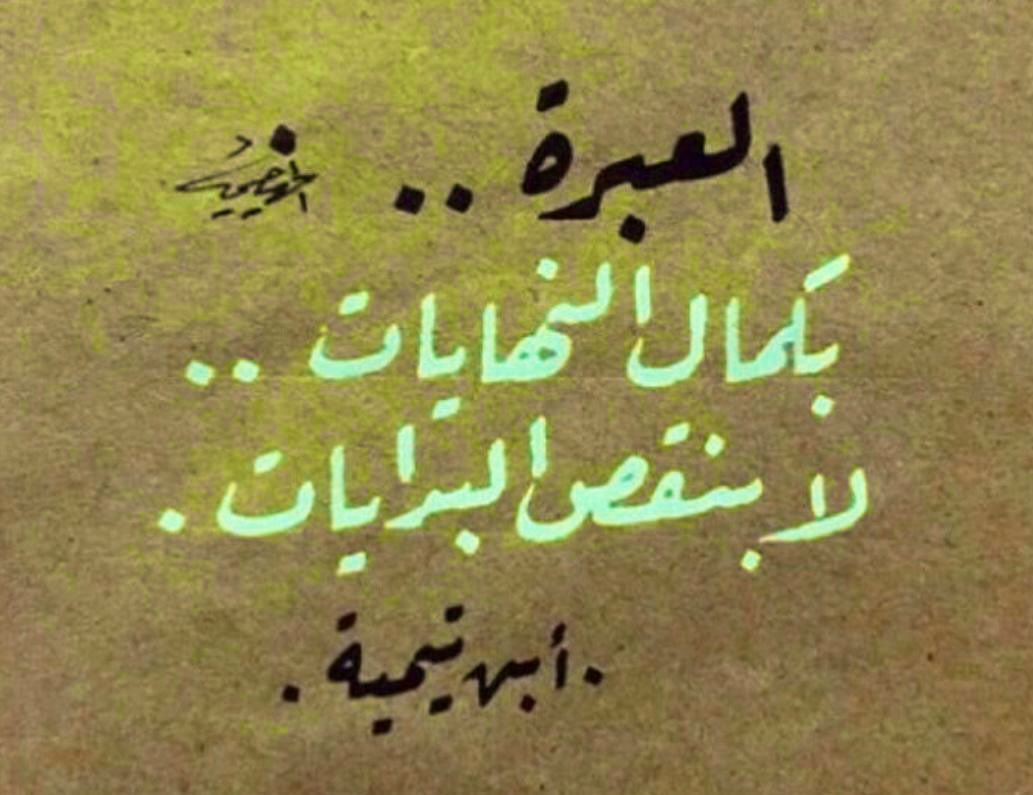 العبرة ..
بكمال النهايات ..
لا بنقص البدايات .
. أبن تيمية .